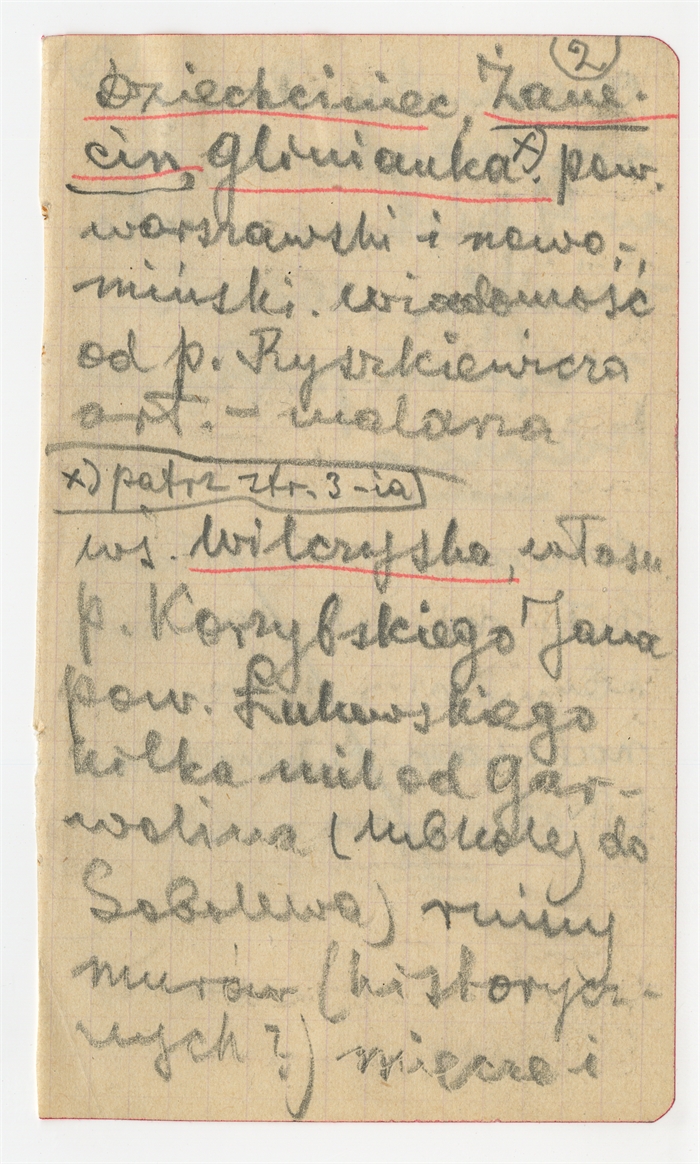 2
Dziechciniec, Żane-
cin, Glinianka x). pow.
warszawski i nowo-,
miński. wiadomość
od p. Ryszkiewicza
art. – malarza
x) patrz str. 3-ia
wś. Wilczyska, własn
p. Korzybskiego Jana
pow. Łukowskiego
kilka mil od Gar-
wolina (lub kolej do
Sobolewa) ruiny
murów (historycz-
nych?) miejsce i